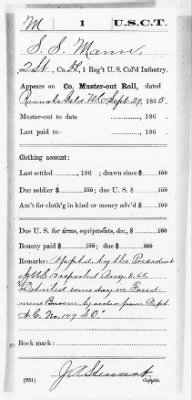 M 1 U.S.C.T.
S. S. Mann
2 Lt., Co. , 1 Reg't U. S. Col'd Infantry.
Appears on Co. Muster-out Roll, dated
Roanoke Isld N.C. Sept. 29, 1865.
Muster-out to date , 186 .
Last paid to , 186 .
Clothing account:
Last settled , 186 ; drawn since $ 100
Due soldier $ 100; due U. S. $ 100
Am't for cloth'g in kind or money adv'd $ 100
Due U. S. for arms, equipments, &c., $ 100
Bounty paid $ 100; due $ 100
Remarks: App'td by the President
of U.S. reported Aug. 8. 65
Detailed same day in Freed
mens Bureau by order from Dept.
N.C. No. 147 S.O.
Book mark:
(361) J A Stewart
Copyist.